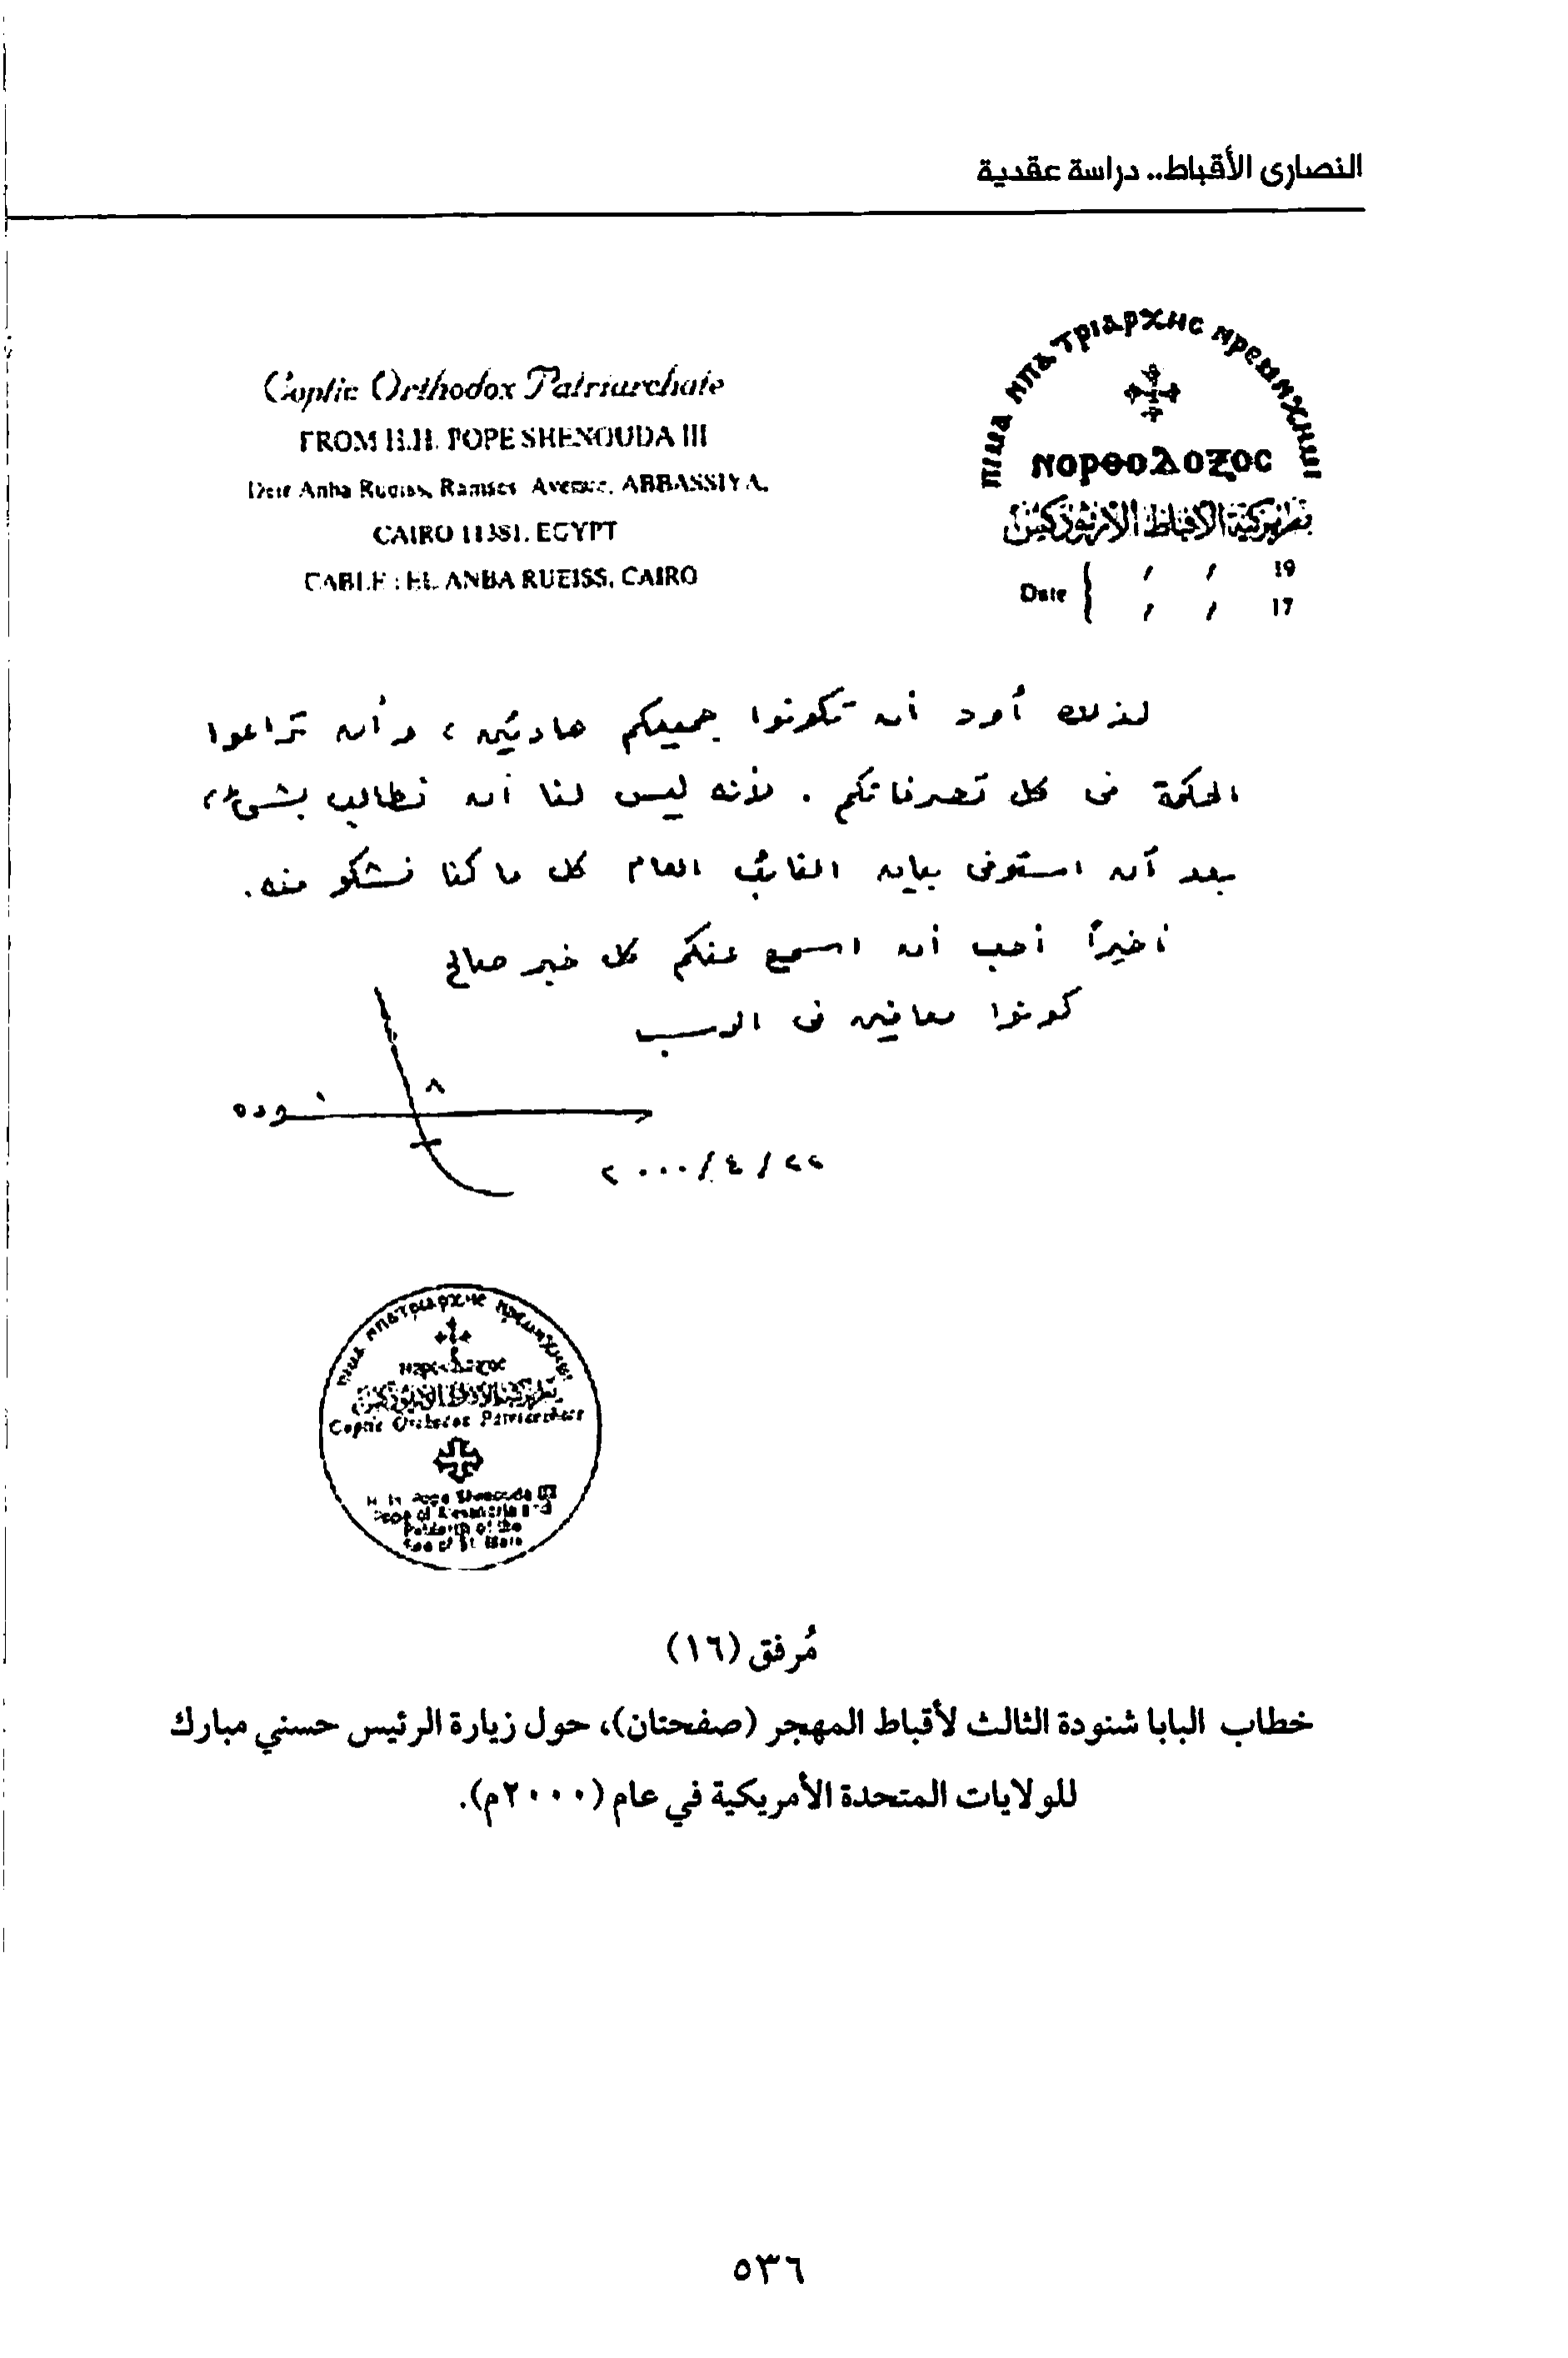 النصارى الأقباط.. دراسة عقدية
Coptic Orthodox Patriarchate
FROM H.H. POPE SHENOUDA III
Deir Anba Rueiss, Ramses Avenue, ABBASSIYA,
CAIRO 11381, EGYPT
CABLE : EL ANBA RUEISS, CAIRO
ⲡⲓⲙⲁ ⲙⲡⲁⲧⲣⲓⲁⲣⲭⲏⲥ ⲛⲣⲉⲙⲛⲭⲏⲙⲓ
ⲛⲟⲣⲑⲟⲇⲟⲝⲟⲥ
بطريركية الأقباط الأرثوذكس
Date { / / 19
/ / 17
لذلك أود أن تكونوا جميعكم هادئين، وأن تراعوا
الحكمة فى كل تصرفاتكم. لأنه ليس لنا أن نطالب بشئ،
بعد أن استوفى بيان النائب العام كل ما كنا نشكو منه.
أخيراً أحب أن اسمع عنكم كل خبر صالح
كونوا معافين فى الرب
شنوده
٢٢/٤/٢٠٠٠
ⲡⲓⲙⲁ ⲙⲡⲁⲧⲣⲓⲁⲣⲭⲏⲥ ⲛⲣⲉⲙⲛⲭⲏⲙⲓ
ⲛⲟⲣⲑⲟⲇⲟⲝⲟⲥ
بطريركية الأقباط الأرثوذكس
Coptic Orthodox Patriarchate
H. H. Pope Shenouda III
Pope of Alexandria and
Patriarch of the
See of St. Mark
مُرفق (١٦)
خطاب البابا شنودة الثالث لأقباط المهجر (صفحتان)، حول زيارة الرئيس حسني مبارك
للولايات المتحدة الأمريكية في عام (٢٠٠٠م).
٥٣٦